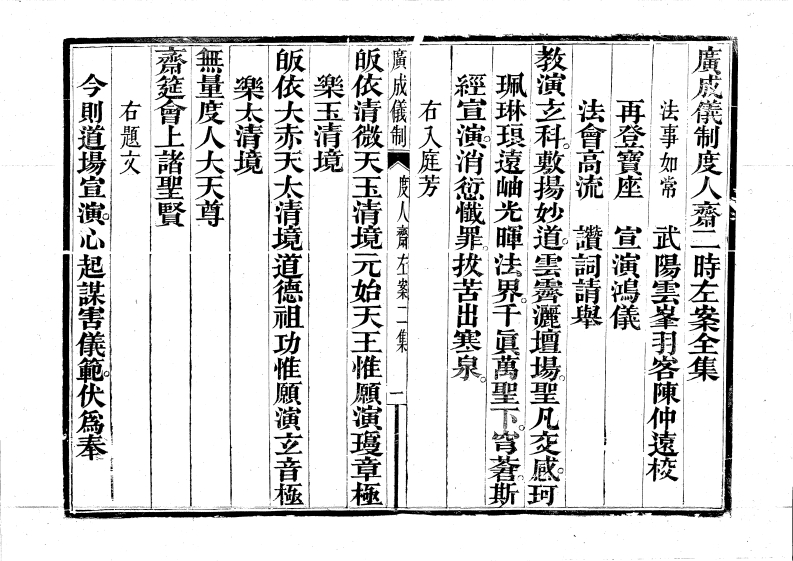 廣成儀制度人齋二時左案全集
法事如常　武陽雲峯羽客陳仲遠校
再登寶座　宣演鴻儀
法會高流　讚詞請舉
教演玄科。敷揚妙道。雲霽灑壇場。聖凡交感。珂
珮琳琅。遠岫光暉法界。千眞萬聖下。穹蒼。斯
經宣演。消愆懺罪。拔苦出寒泉。
右入庭芳
廣成儀制　度人齋左案二集　一
皈依清微天玉清境元始天王惟願演瓊章極
樂玉清境
皈依大赤天太清境道德祖功惟願演玄音極
樂太清境
無量度人大天尊
齋筵會上諸聖賢
右題文
今則道場宣演。心起謀害儀範。伏爲奉